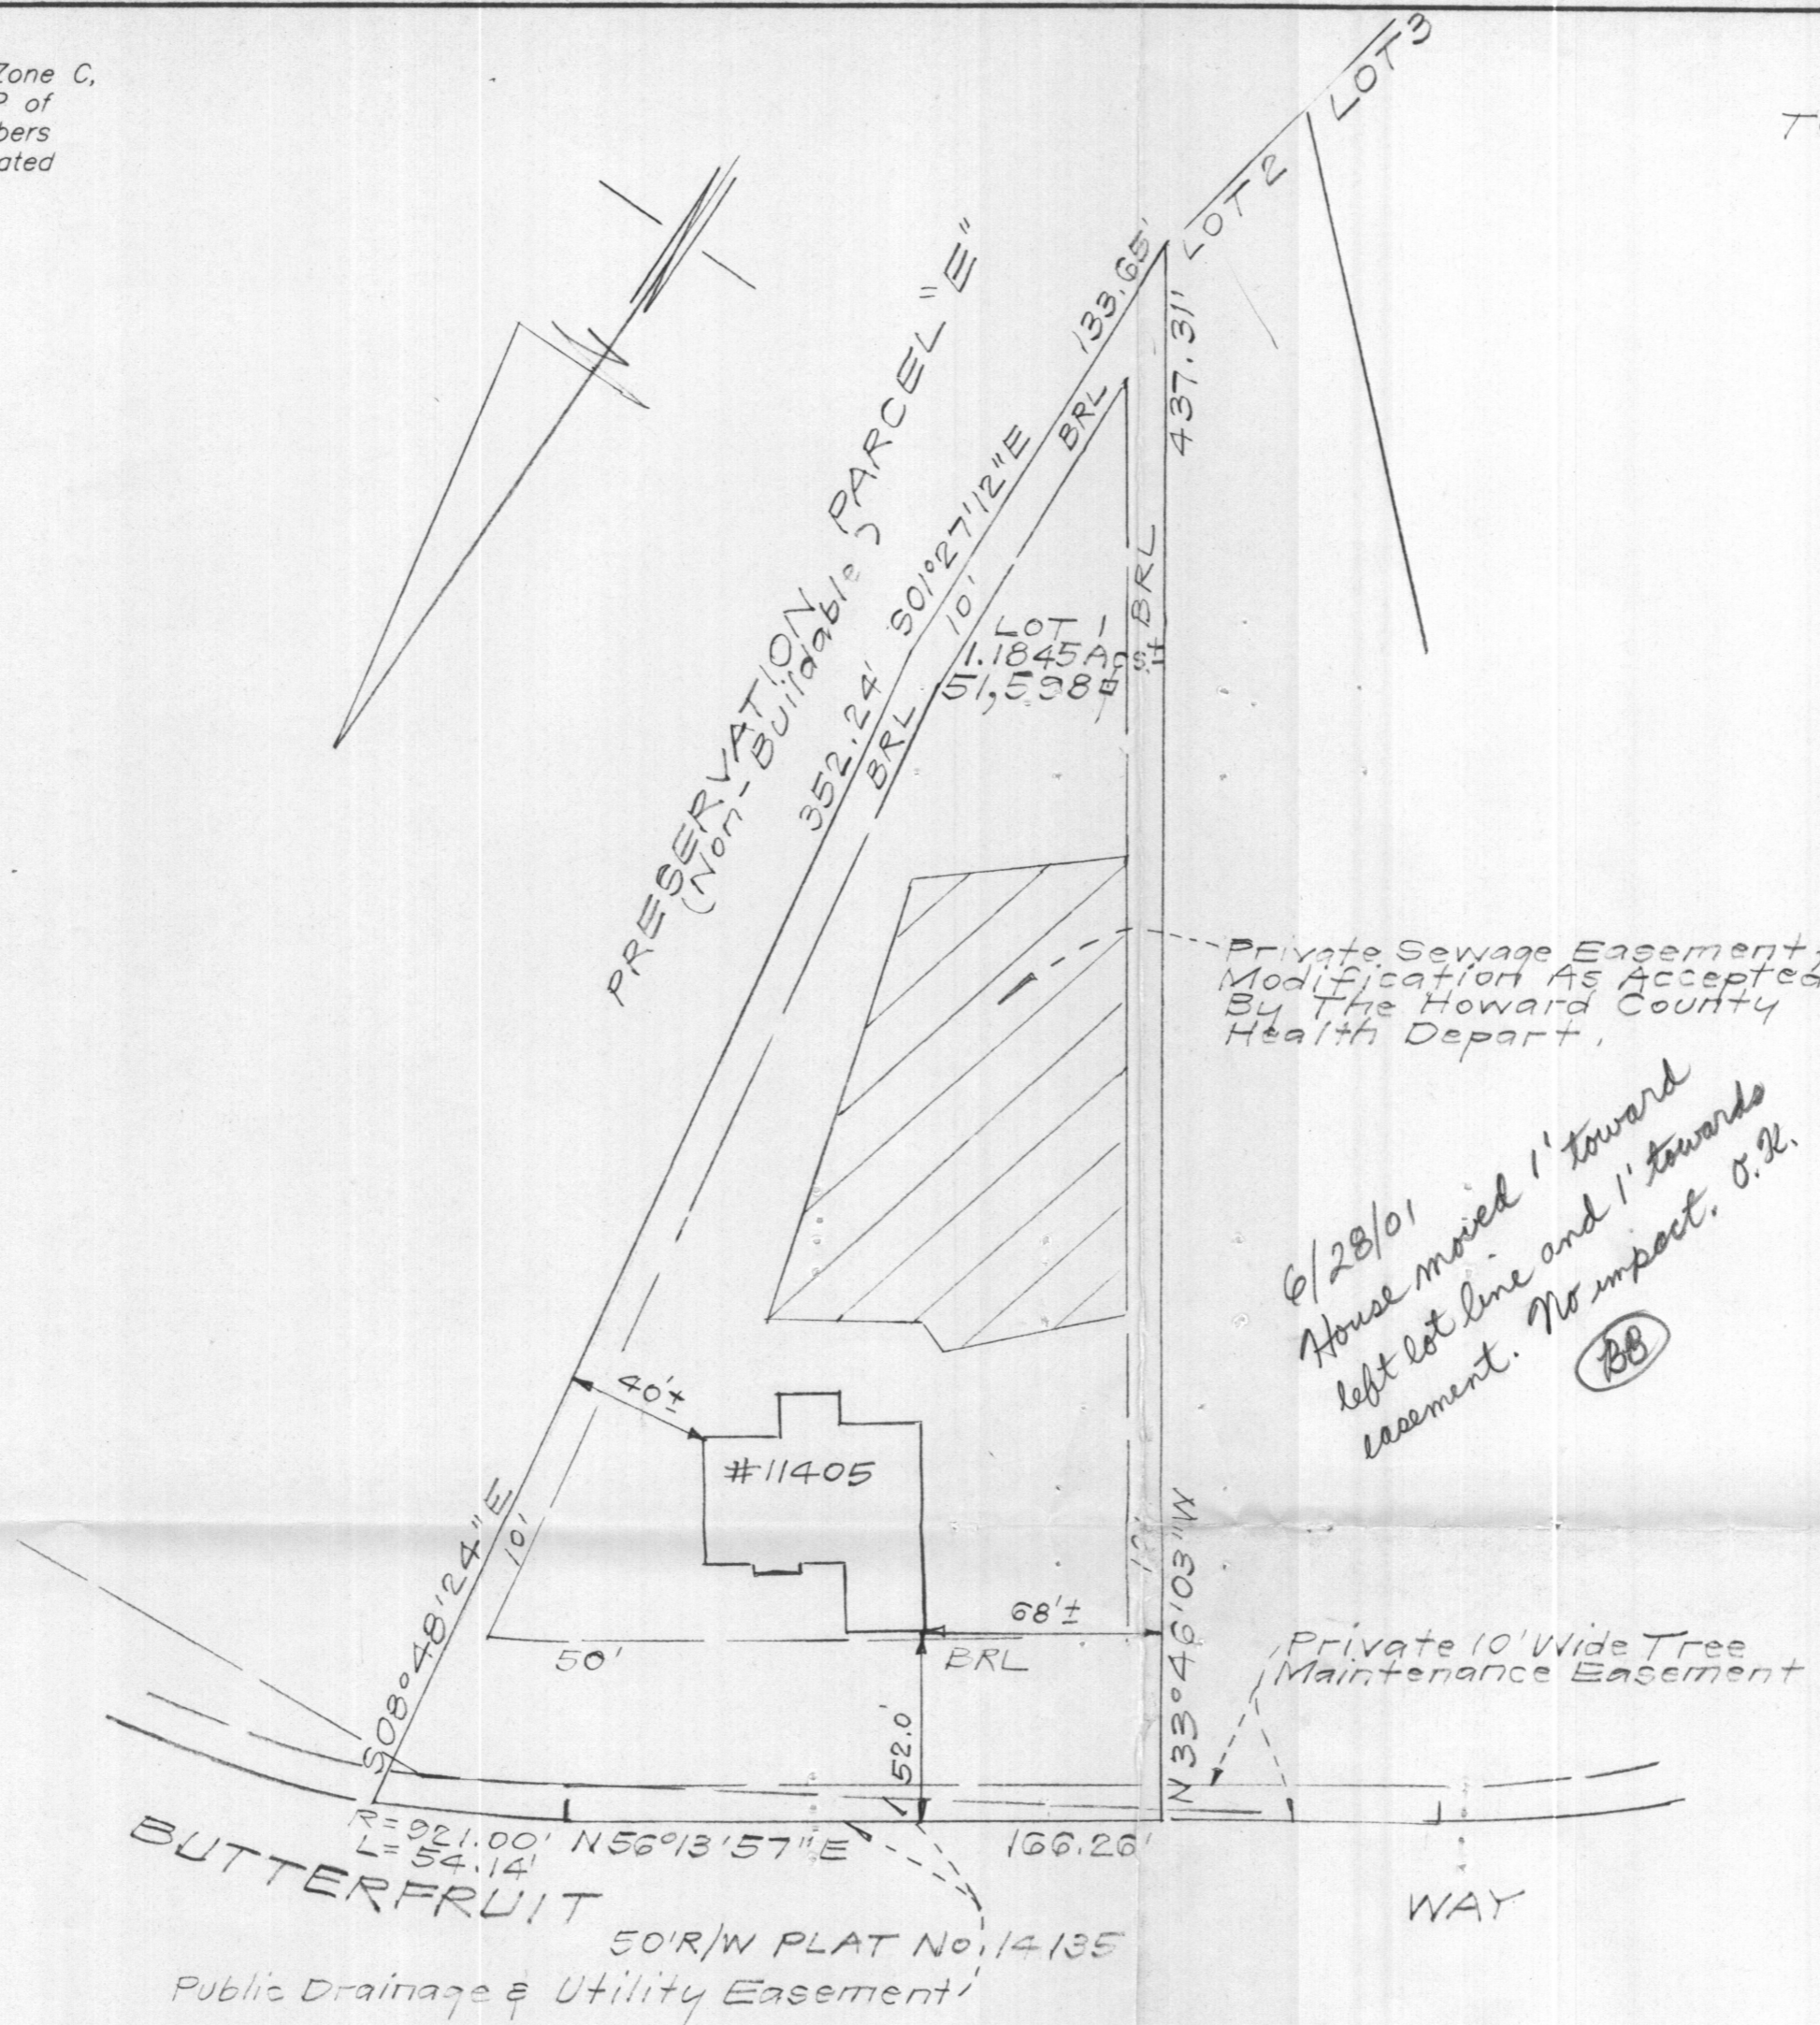 Zone C,
P of
bers
ated
LOT 3
LOT 2
PRESERVATION PARCEL "E"
(Non-Buildable)
133.65'
S01°27'12"E
352.24'
437.31'
BRL
10'
BRL
BRL
LOT 1
1.1845 Acs.±
51,598
Private Sewage Easement,
Modification As Accepted
By The Howard County
Health Depart.
6/28/01
House moved 1' toward
left lot line and 1' towards
easement. No impact. O.K.
BB
40'±
#11405
S08°48'24"E
10'
68'±
N33°46'03"W
50'
BRL
Private 10' Wide Tree
Maintenance Easement
52.0'
R=921.00'
L=54.14'
N56°13'57"E
166.26'
BUTTERFRUIT
WAY
50'R/W PLAT No. 14135
Public Drainage & Utility Easement